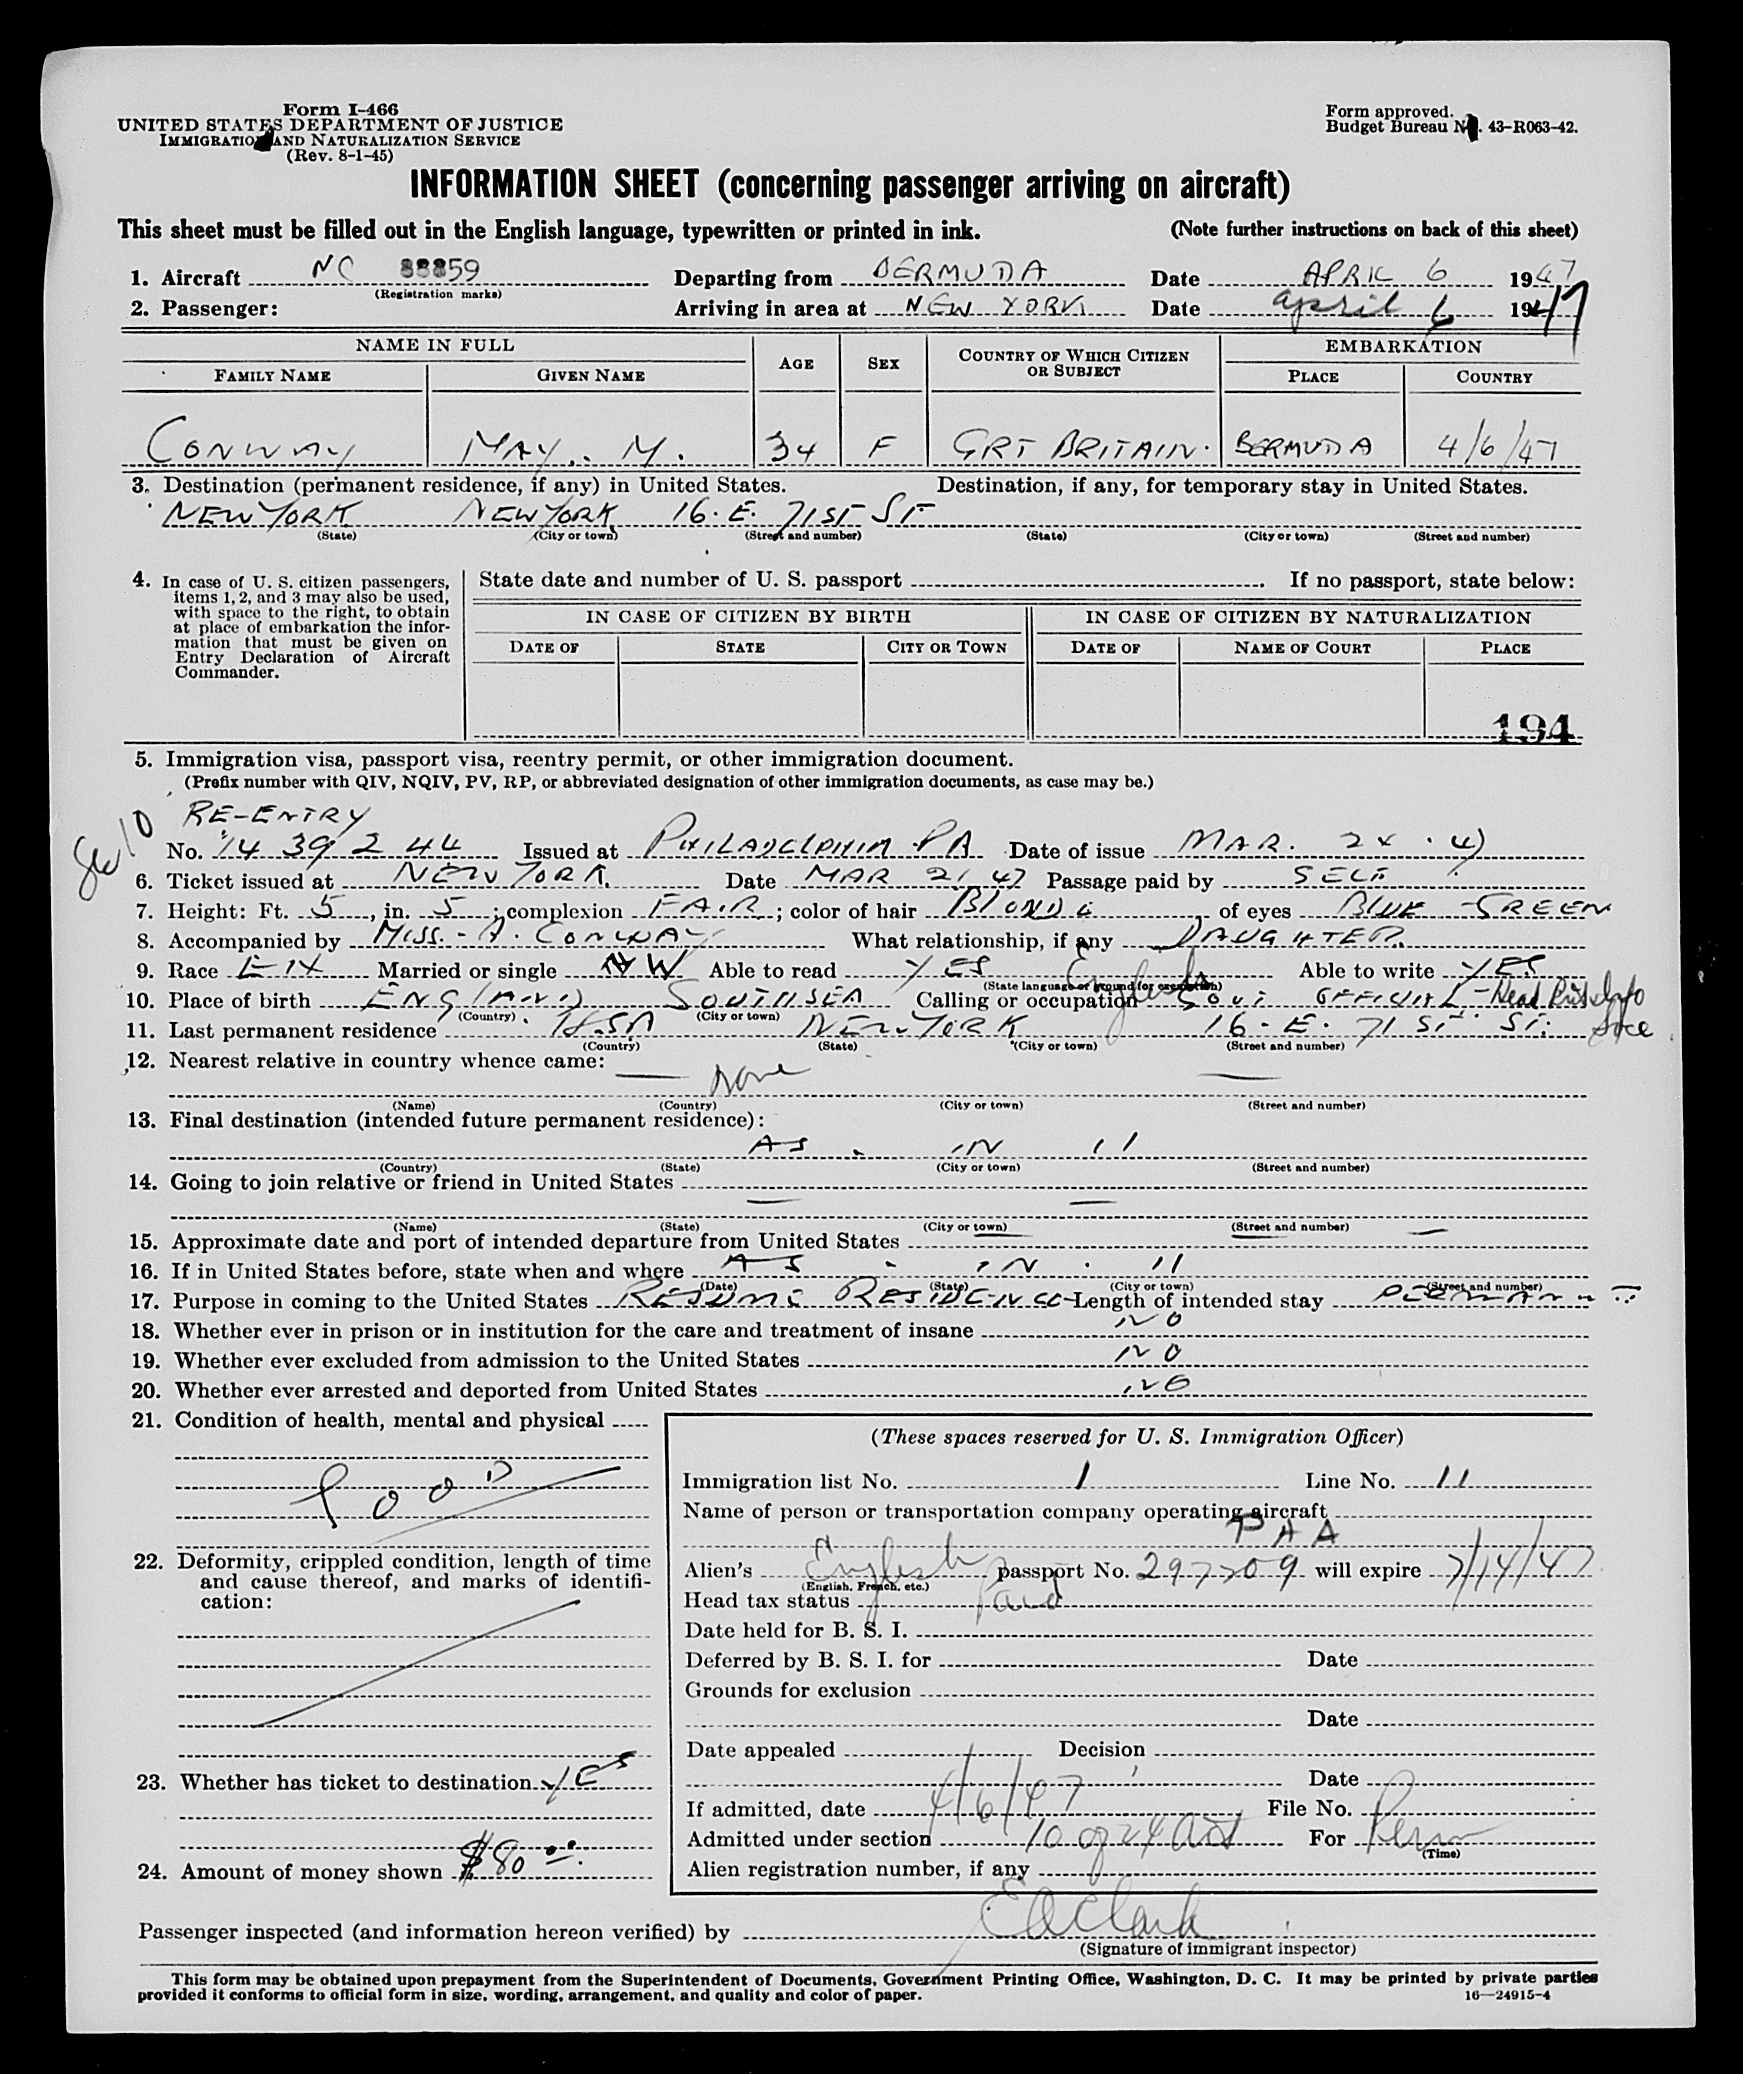 Form I-466
UNITED STATES DEPARTMENT OF JUSTICE
IMMIGRATION AND NATURALIZATION SERVICE
(Rev. 8-1-45)
Form approved.
Budget Bureau No. 43-R063-42.
INFORMATION SHEET (concerning passenger arriving on aircraft)
This sheet must be filled out in the English language, typewritten or printed in ink. (Note further instructions on back of this sheet)
1. Aircraft NC 88859 Departing from BERMUDA Date APRIL 6 1947
(Registration marks)
2. Passenger: Arriving in area at NEW YORK Date April 6 1947
NAME IN FULL AGE SEX COUNTRY OF WHICH CITIZEN OR SUBJECT EMBARKATION
FAMILY NAME GIVEN NAME PLACE COUNTRY
CONWAY MAY. M. 34 F GRT BRITAIN. BERMUDA 4/6/47
3. Destination (permanent residence, if any) in United States. Destination, if any, for temporary stay in United States.
NEW YORK NEW YORK 16. E. 71ST ST
(State) (City or town) (Street and number) (State) (City or town) (Street and number)
4. In case of U. S. citizen passengers, items 1, 2, and 3 may also be used, with space to the right, to obtain at place of embarkation the information that must be given on Entry Declaration of Aircraft Commander.
State date and number of U. S. passport . If no passport, state below:
IN CASE OF CITIZEN BY BIRTH IN CASE OF CITIZEN BY NATURALIZATION
DATE OF STATE CITY OR TOWN DATE OF NAME OF COURT PLACE
194
5. Immigration visa, passport visa, reentry permit, or other immigration document.
(Prefix number with QIV, NQIV, PV, RP, or abbreviated designation of other immigration documents, as case may be.)
RE-ENTRY
No. 1439244 Issued at PHILADELPHIA PA Date of issue MAR. 47
6. Ticket issued at NEW YORK. Date MAR 21 47 Passage paid by SELF
7. Height: Ft. 5, in. 5; complexion FAIR; color of hair BLONDE of eyes BLUE-GREEN
8. Accompanied by MISS. A. CONWAY What relationship, if any DAUGHTER.
9. Race Married or single W Able to read YES English Able to write YES
(State language or ground for exemption)
10. Place of birth ENGLAND SOUTHSEA Calling or occupation GOVT OFFICIAL - Head Brit Info Svce
(Country) (City or town)
11. Last permanent residence USA NEW YORK 16. E. 71 ST. ST.
(Country) (State) (City or town) (Street and number)
12. Nearest relative in country whence came: None
(Name) (Country) (City or town) (Street and number)
13. Final destination (intended future permanent residence):
AS IN 11
(Country) (State) (City or town) (Street and number)
14. Going to join relative or friend in United States
(Name) (State) (City or town) (Street and number)
15. Approximate date and port of intended departure from United States
16. If in United States before, state when and where AS IN 11
(Date) (State) (City or town) (Street and number)
17. Purpose in coming to the United States RESUME RESIDENCE Length of intended stay PERMANENT
18. Whether ever in prison or in institution for the care and treatment of insane NO
19. Whether ever excluded from admission to the United States NO
20. Whether ever arrested and deported from United States NO
21. Condition of health, mental and physical
GOOD
22. Deformity, crippled condition, length of time and cause thereof, and marks of identification:
23. Whether has ticket to destination YES
24. Amount of money shown $80
(These spaces reserved for U. S. Immigration Officer)
Immigration list No. 1 Line No. 11
Name of person or transportation company operating aircraft
PAA
Alien's English passport No. 297709 will expire 7/14/47
(English, French, etc.)
Head tax status Paid
Date held for B. S. I.
Deferred by B. S. I. for Date
Grounds for exclusion
Date
Date appealed Decision
Date
If admitted, date 4/6/47 File No.
Admitted under section 10 of 24 Act For Perm
(Time)
Alien registration number, if any
Passenger inspected (and information hereon verified) by EAClark
(Signature of immigrant inspector)
This form may be obtained upon prepayment from the Superintendent of Documents, Government Printing Office, Washington, D. C. It may be printed by private parties
provided it conforms to official form in size, wording, arrangement, and quality and color of paper. 16—24915-4